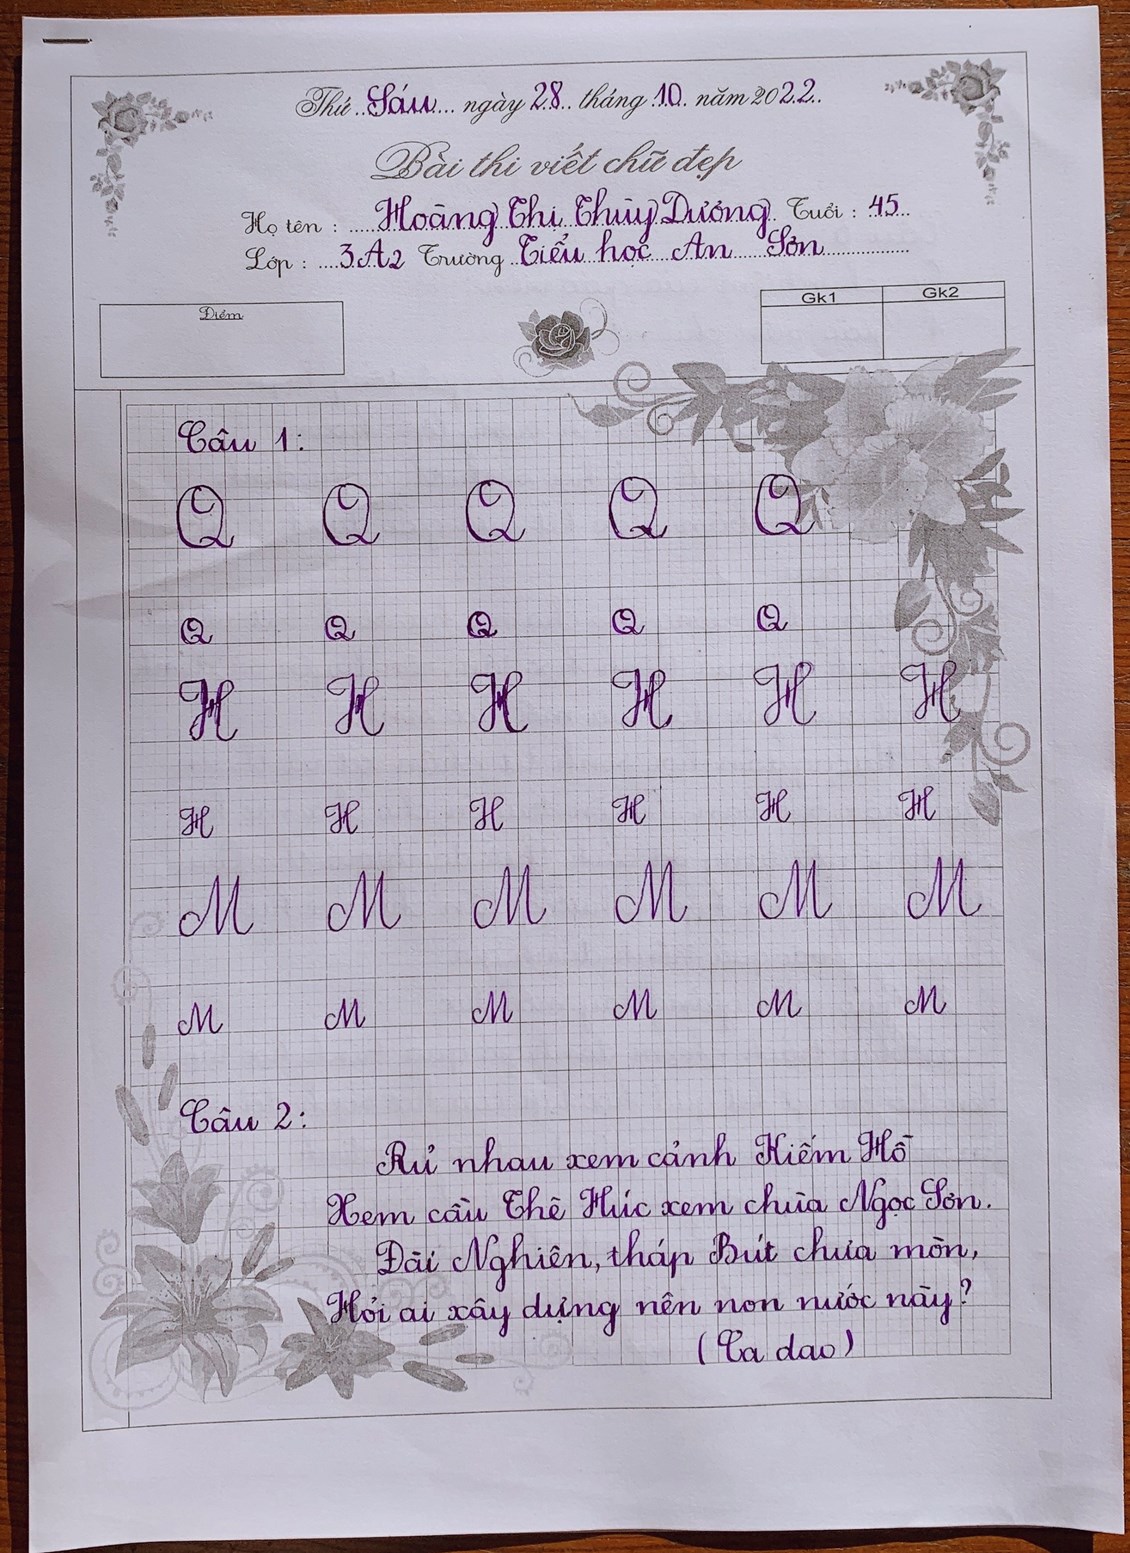 Thứ Sáu ngày 28 tháng 10 năm 2022
Bài thi viết chữ đẹp
Họ tên : Hoàng Thị Thùy Dương Tuổi : 45
Lớp : 3A2 Trường Tiểu học An Sơn
Điểm
Gk1 Gk2
Câu 1:
Q Q Q Q Q
Q Q Q Q Q
H H H H H H
H H H H H H
M M M M M M
M M M M M M
Câu 2:
Rủ nhau xem cảnh Kiếm Hồ
Xem cầu Thê Húc xem chùa Ngọc Sơn.
Đài Nghiên, tháp Bút chưa mòn,
Hỏi ai xây dựng nên non nước này?
(Ca dao)